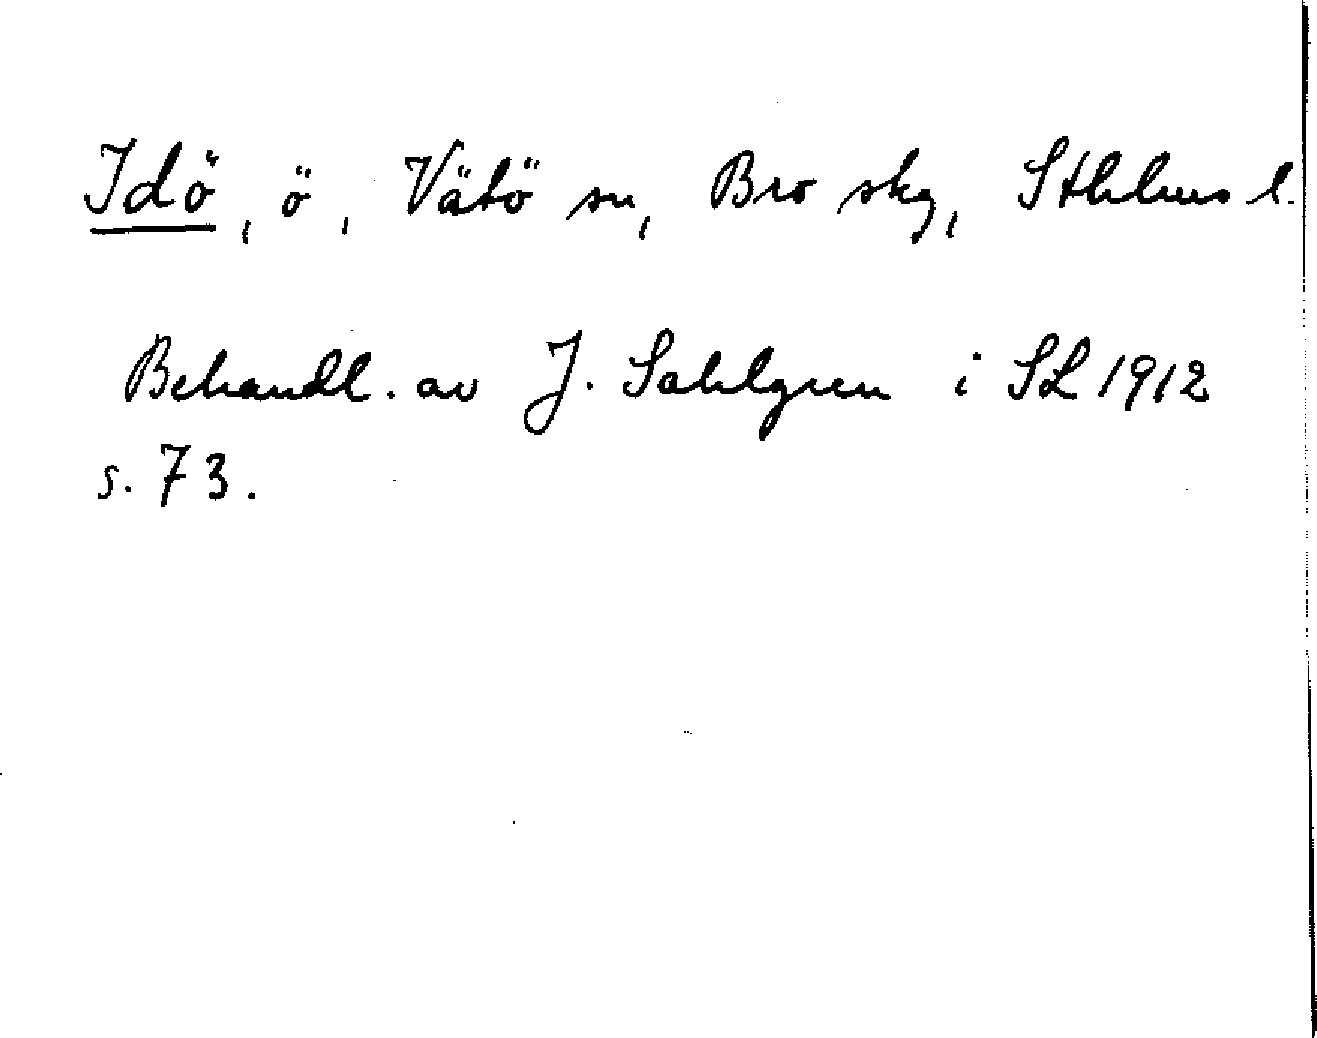 Idö, ö, Vätö sn, Bro skg, Sthlms l.
Behandl. av J. Sahlgren i SL 1912
s. 73.